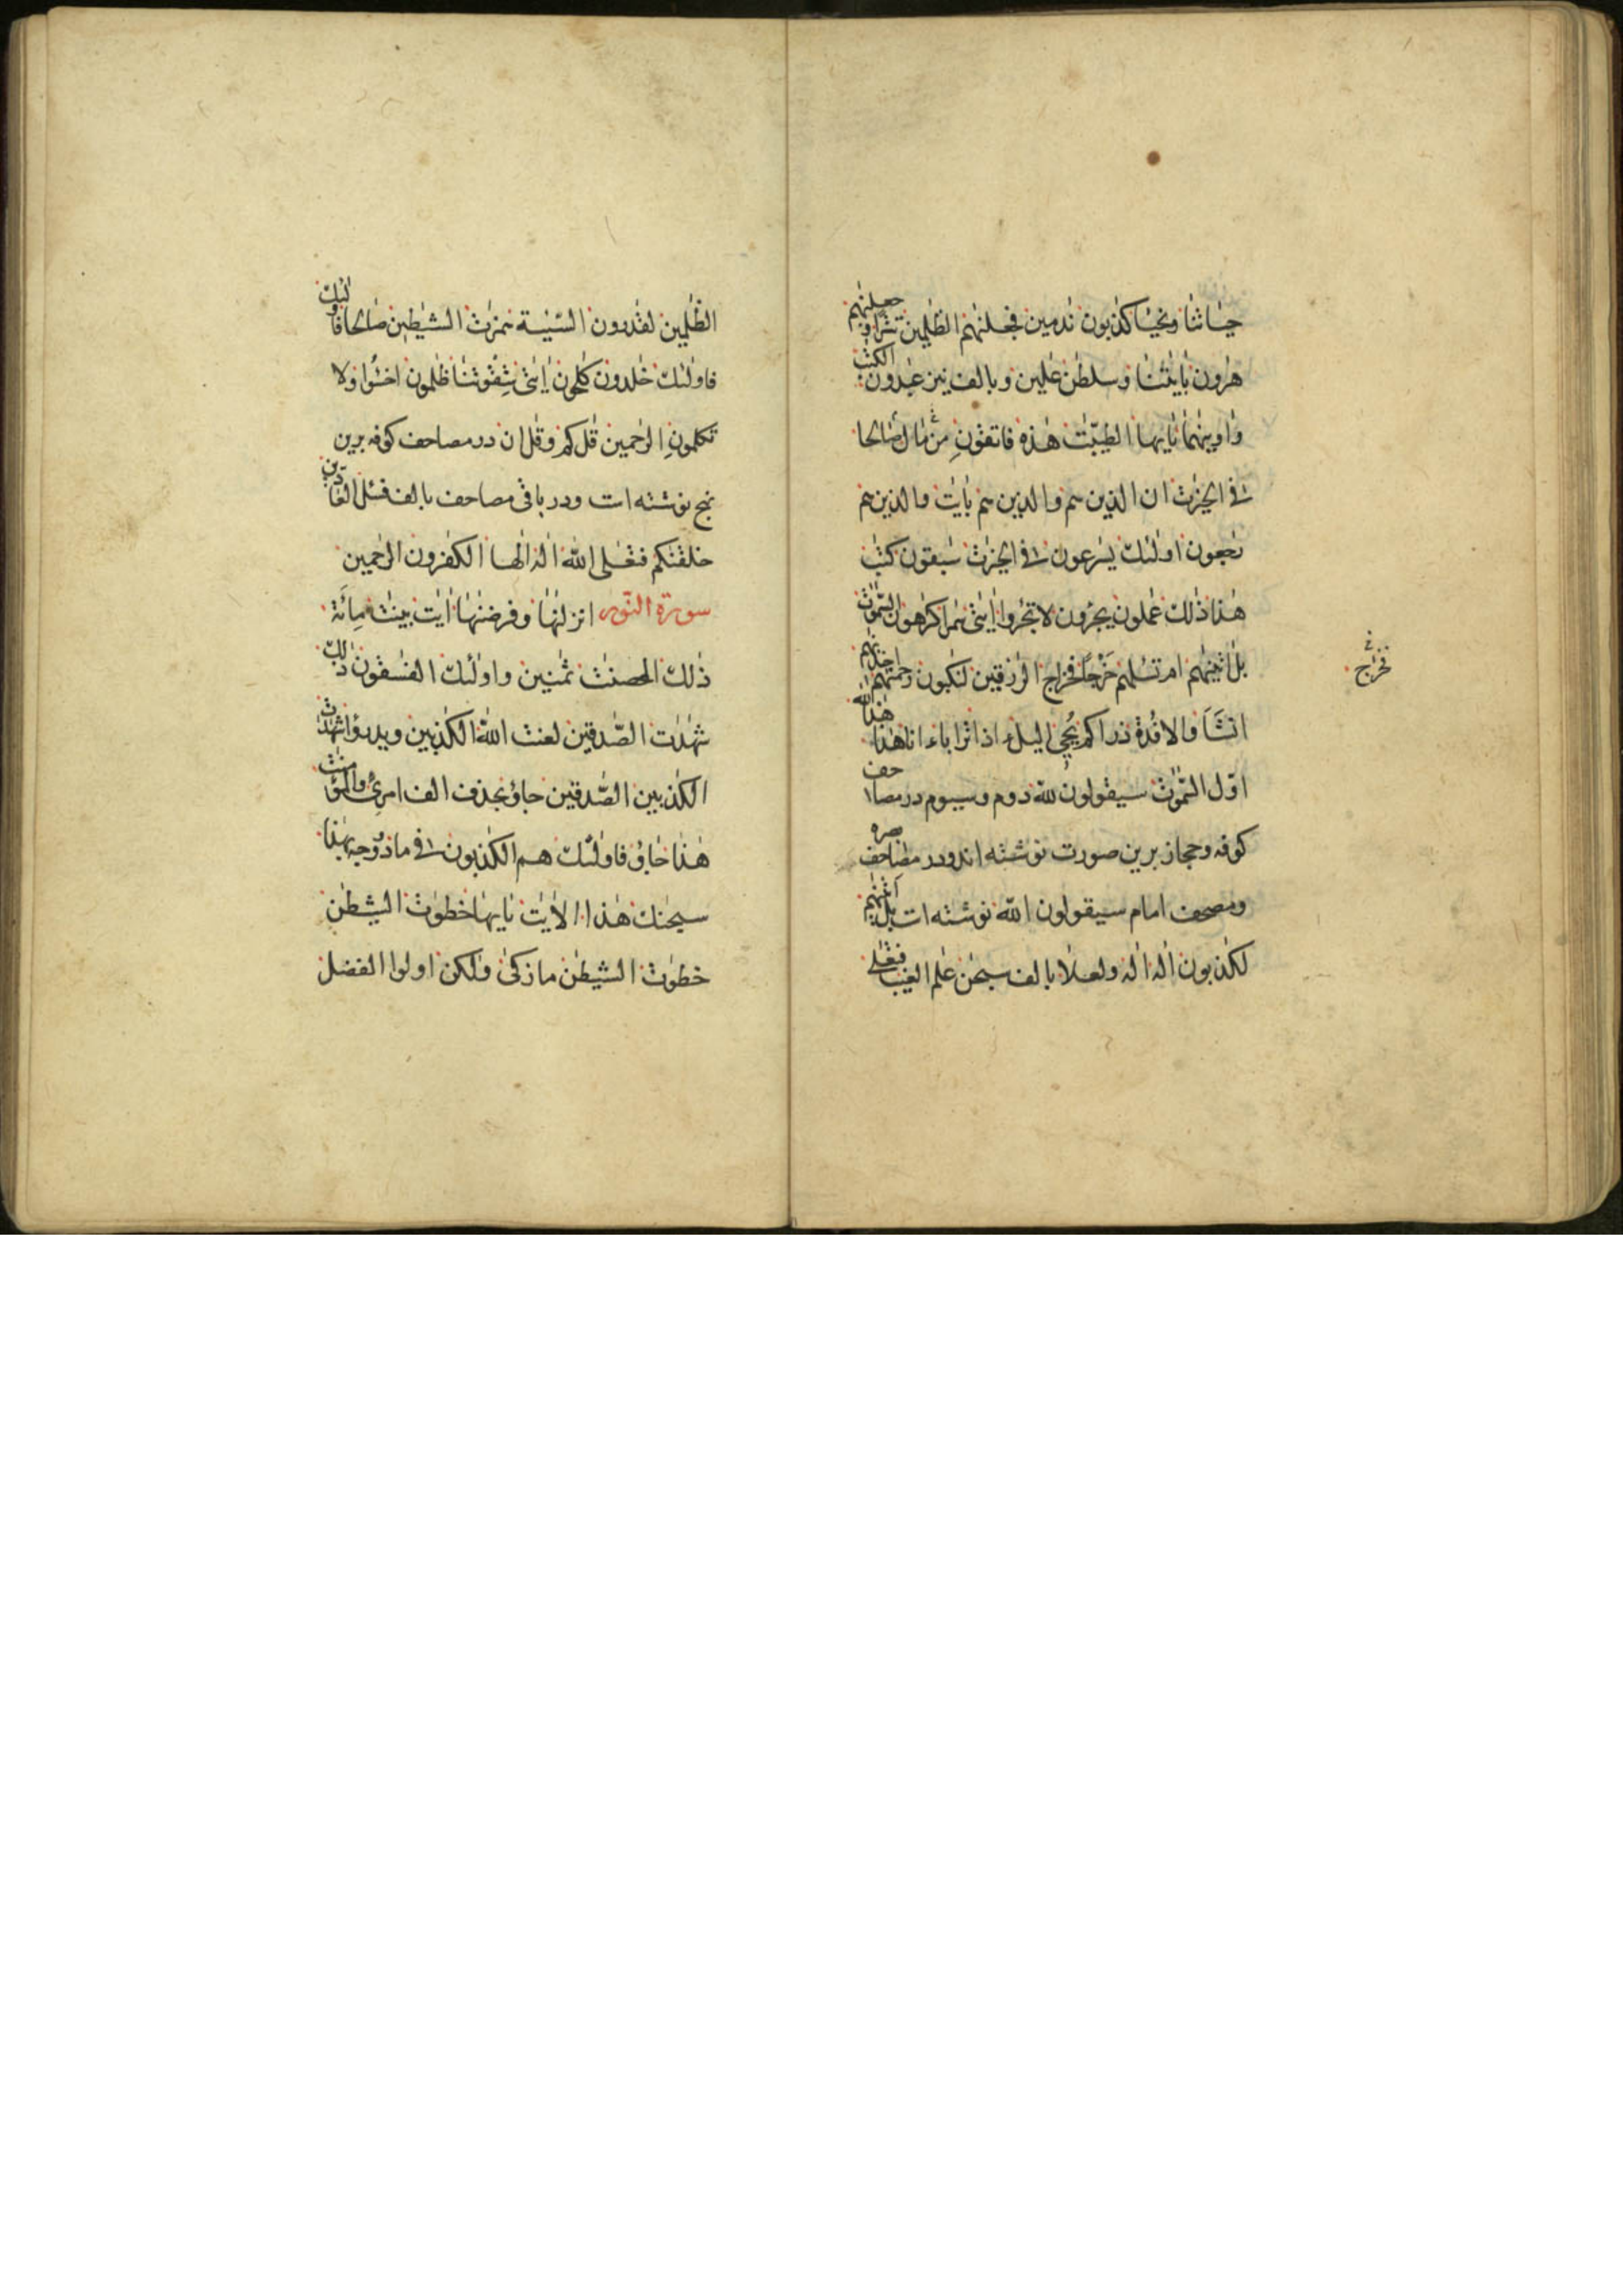 حياتنا ونحيا كذبون ندمين فجعلنهم الظلمين تترا وجعلنهم
هرون بايتنا وسلطن علمين وبالف نيز عبدون الكتب
واوينهما يايها الطيبت هذه فاتقون من مال صالحا
فى الخيرت ان الذين هم والذين هم بايت والذين هم
رجعون اولئك يسرعون فى الخيرت سبقون كتب
هذا ذلك عملون يجرون لا تجروا ايتى سمرا كرهون السموت
بل اتينهم ام تسلهم خرجا فخراج الرزقين لنكبون رحمنهم اخذنهم
فخرج
انشا والافدة ذراكم يحى اليل ءاذا ترابا ءانا هذا هذا
اول السموت سيقولون لله دوم وسيوم در مصاحف
كوفه وحجاز برين صورت نوشته اند ودر مصاحف بصره
ومصحف امام سيقولون الله نوشته ات بل اتينهم
لكذبون اله اله ولعلا بالف سبحن علم الغيب فتعلى
الظلمين لقدرون السيئة همزت الشيطين صالحا فاولئك
فاولئك خلدون كلحون ايتى شقوتنا ظلمون اخسئوا ولا
تكلمون الرحمين قل كم وقل ان در مصاحف كوفه برين
نهج نوشته ات ودر باقى مصاحف بالف فسئل العادين
خلقنكم فتعلى الله اله الها الكفرون الرحمين
سورة النور انزلنها وفرضنها ايت بينت مائة
ذلك المحصنت ثمنين واولئك الفسقون ذلك
شهدت الصدقين لعنت الله الكذبين ويدرؤا شهدت
الكذبين الصدقين جاؤ بحذف الف امرئ والمؤمنت
هذا جاؤ فاولئك هم الكذبون فى ما
سبحنك هذا الايت يايها خطوت الشيطن
خطوت الشيطن ما زكى ولكن اولوا الفضل